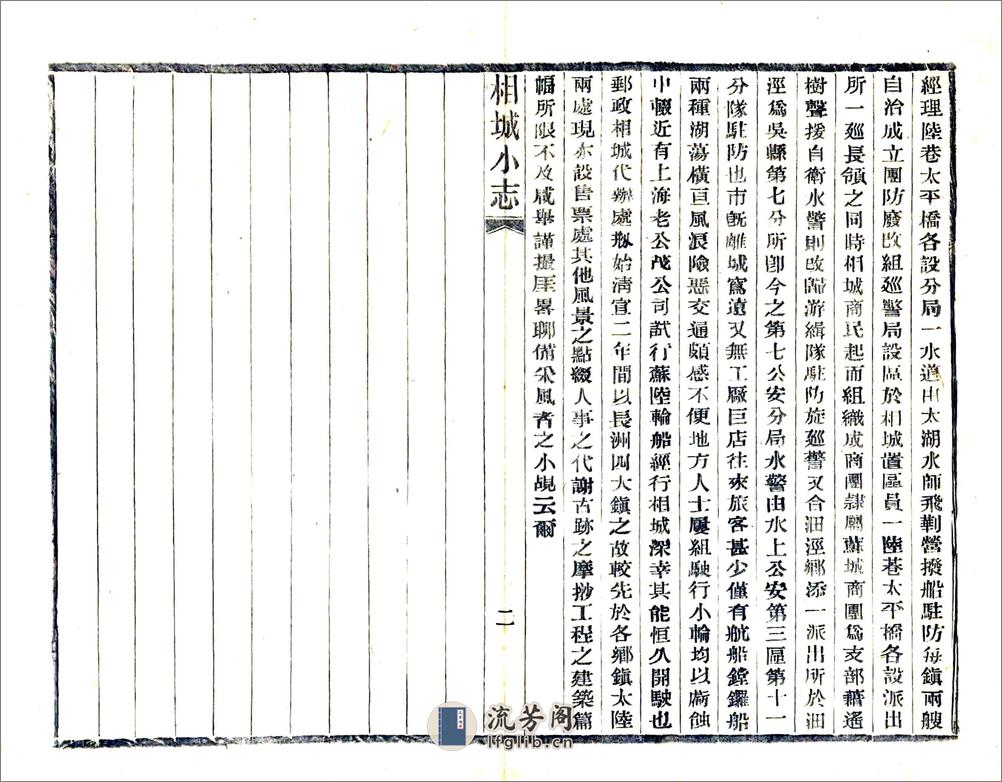 經理陸巷太平橋各設分局一水道由太湖水師飛劃營撥船駐防每鎭兩艘
自治成立團防廢改組巡警局設區於相城置區員一陸巷太平橋各設派出
所一巡長領之同時相城商民起而組織成商團隷屬蘇城商團爲支部藉遙
樹聲援自衛水警則改歸游緝隊駐防旋巡警又合洄涇鄉添一派出所於洄
涇爲吳縣第七分所卽今之第七公安分局水警由水上公安第三區第十一
分隊駐防也市旣離城窵遠又無工廠巨店往來旅客甚少僅有航船鏜鑼船
兩種湖蕩橫亘風浪險惡交通頗感不便地方人士屢組駛行小輪均以腐蝕
中輟近有上海老公茂公司試行蘇陸輪船經行相城深幸其能恒久開駛也
郵政相城代辦處剏始淸宣二年間以長洲四大鎭之故較先於各鄉鎭太陸
兩處現亦設售票處其他風景之點綴人事之代謝古跡之摩挱工程之建築篇
幅所限不及咸舉謹撮厓畧聊備采風者之小覘云爾
相城小志
二
流芳阁
lfglib.cn